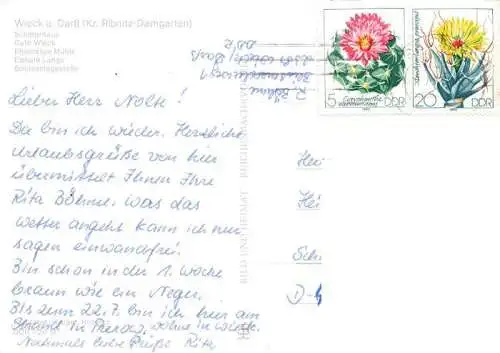 Wieck a. Darß (Kr. Ribnitz-Damgarten)
Café Wieck
Ehemalige Mühle
Lieber Herr Nolte!
Da bin ich wieder. Herzliche
Urlaubsgrüße von hier
übermittelt Ihnen Ihre
Rita Böhme, was das
Wetter angeht kann ich nur
sagen einwandfrei.
Bin schon in der 1. Woche
braun wie ein Neger.
Bis zum 22.7. bin ich hier am
Strand in Prerow, wohne in Wieck.
Nochmals liebe Grüße Rita
R. Böhme
BILD UND HEIMAT REICHENBACH
5 DDR
20 DDR
Her
Hei
Sch
D-